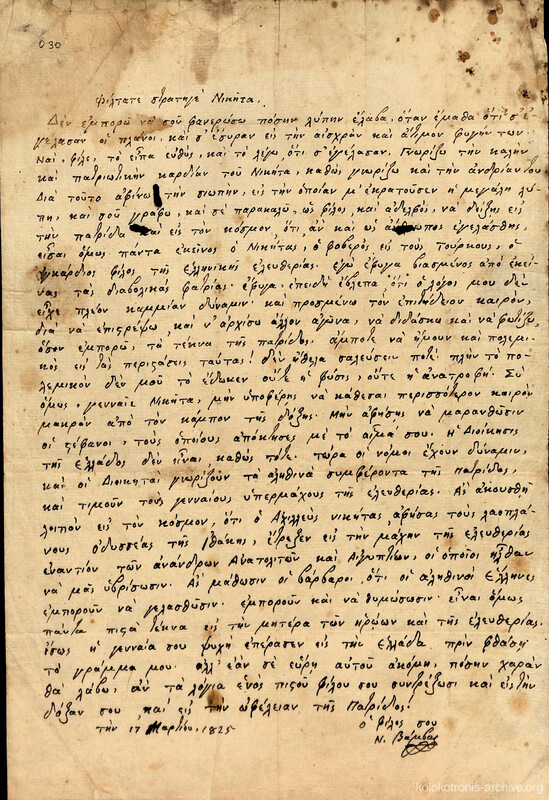 030
Φίλτατε στρατηγὲ Νικήτα,
Δὲν ἐμπορῶ νὰ σοῦ φανερώσω πόσην λύπην ἔλαβα, ὅταν ἔμαθα ὅτι σ' ἐ
γέλασαν οἱ πλάνοι, καὶ σ' ἔσυραν εἰς τὴν αἰσχρὰν καὶ ἄτιμον φυγήν των.
Ναὶ, φίλε, τὸ εἶπα εὐθὺς, καὶ τὸ λέγω, ὅτι σ' ἐγέλασαν. Γνωρίζω τὴν καλὴν
καὶ πατριωτικὴν καρδίαν τοῦ Νικήτα, καθὼς γνωρίζω καὶ τὴν ἀνδρίαν του
Διὰ τοῦτο ἀφίνω τὴν σιωπὴν, εἰς τὴν ὁποίαν μ' ἐκρατοῦσεν ἡ μεγάλη λύ
πη, καὶ σοῦ γράφω, καὶ σὲ παρακαλῶ, ὡς φίλος, καὶ ἀδελφὸς, νὰ δείξῃς εἰς
τὴν πατρίδα καὶ εἰς τὸν κόσμον, ὅτι, ἂν καὶ ὡς ἄνθρωπος ἐγελάσθης,
εἶσαι ὅμως πάντα ἐκεῖνος ὁ Νικήτας, ὁ φοβερὸς εἰς τοὺς τούρκους, ὁ
ἐγκάρδιος φίλος τῆς ἑλληνικῆς ἐλευθερίας. ἐγὼ ἔφυγα βιασμένος ἀπὸ ἐκεί
νας τὰς διαβολικὰς φατρίας. ἔφυγα, ἐπειδὴ ἔβλεπα, ὅτι ὁ λόγος μου δὲν
εἶχε πλέον καμμίαν δύναμιν· καὶ προσμένω τὸν ἐπιτήδειον καιρὸν,
διὰ νὰ ἐπιστρέψω, καὶ ν' ἀρχίσω ἄλλον ἀγῶνα, νὰ διδάσκω καὶ νὰ φωτίζω,
ὅσον ἐμπορῶ, τὰ τέκνα τῆς πατρίδος. ἄμποτε νὰ ἤμουν καὶ πολεμι
κὸς εἰς τὰς περιστάσεις ταύτας! δὲν ἤθελα σαλεύσειν ποτέ· πλὴν τὸ πο
λεμικὸν δὲν μοῦ τὸ ἔδωκεν οὔτε ἡ φύσις, οὔτε ἡ ἀνατροφή. Σὺ
ὅμως, γενναῖε Νικήτα, μὴν ὑποφέρῃς νὰ κάθεσαι περισσότερον καιρὸν
μακρὰν ἀπὸ τὸν κάμπον τῆς δόξης. Μὴν ἀφήσῃς νὰ μαρανθῶσιν
οἱ στέφανοι, τοὺς ὁποίους ἀπόκτησες μὲ τὸ αἷμά σου. Ἡ Διοίκησις
τῆς Ἑλλάδος δὲν εἶναι καθὼς τότε. τώρα οἱ νόμοι ἔχουν δύναμιν,
καὶ οἱ Διοικηταὶ γνωρίζουν τὰ ἀληθινὰ συμφέροντα τῆς πατρίδος,
καὶ τιμοῦν τοὺς γενναίους ὑπερμάχους τῆς ἐλευθερίας. Ἂς ἀκουσθῇ
λοιπὸν εἰς τὸν κόσμον, ὅτι ὁ Ἀχιλλεὺς νικήτας, ἀφήσας τοὺς λαοπλά
νους Ὀδυσσέας τῆς Ἰθάκης, ἔτρεξεν εἰς τὴν μάχην τῆς ἐλευθερίας
ἐναντίον τῶν ἀνάνδρων Ἀνατολιτῶν καὶ Αἰγυπτίων, οἱ ὁποῖοι ἦλθαν
νὰ μᾶς ὑβρίσωσιν. Ἂς μάθωσιν οἱ βάρβαροι, ὅτι οἱ ἀληθινοὶ Ἕλληνες
ἐμποροῦν νὰ γελασθῶσιν· ἐμποροῦν καὶ νὰ θυμώσωσιν· εἶναι ὅμως
πάντα πιστὰ τέκνα εἰς τὴν μητέρα τῶν ἡρώων καὶ τῆς ἐλευθερίας.
ἴσως ἡ γενναία σου ψυχὴ ἐπέρασεν εἰς τὴν Ἑλλάδα πρὶν φθάσῃ
τὸ γράμμα μου. ἀλλ' ἐὰν σὲ εὕρῃ αὐτοῦ ἀκόμη, πόσην χαρὰν
θὰ λάβω, ἂν τὰ λόγια ἑνὸς πιστοῦ φίλου σου συντρέξωσι καὶ εἰς τὴν
δόξαν σου, καὶ εἰς τὴν ὠφέλειαν τῆς Πατρίδος!
τὴν 17 Μαρτίου, 1825
ὁ φίλος σου
Ν. Βάμβας
kolokotronis-archive.org